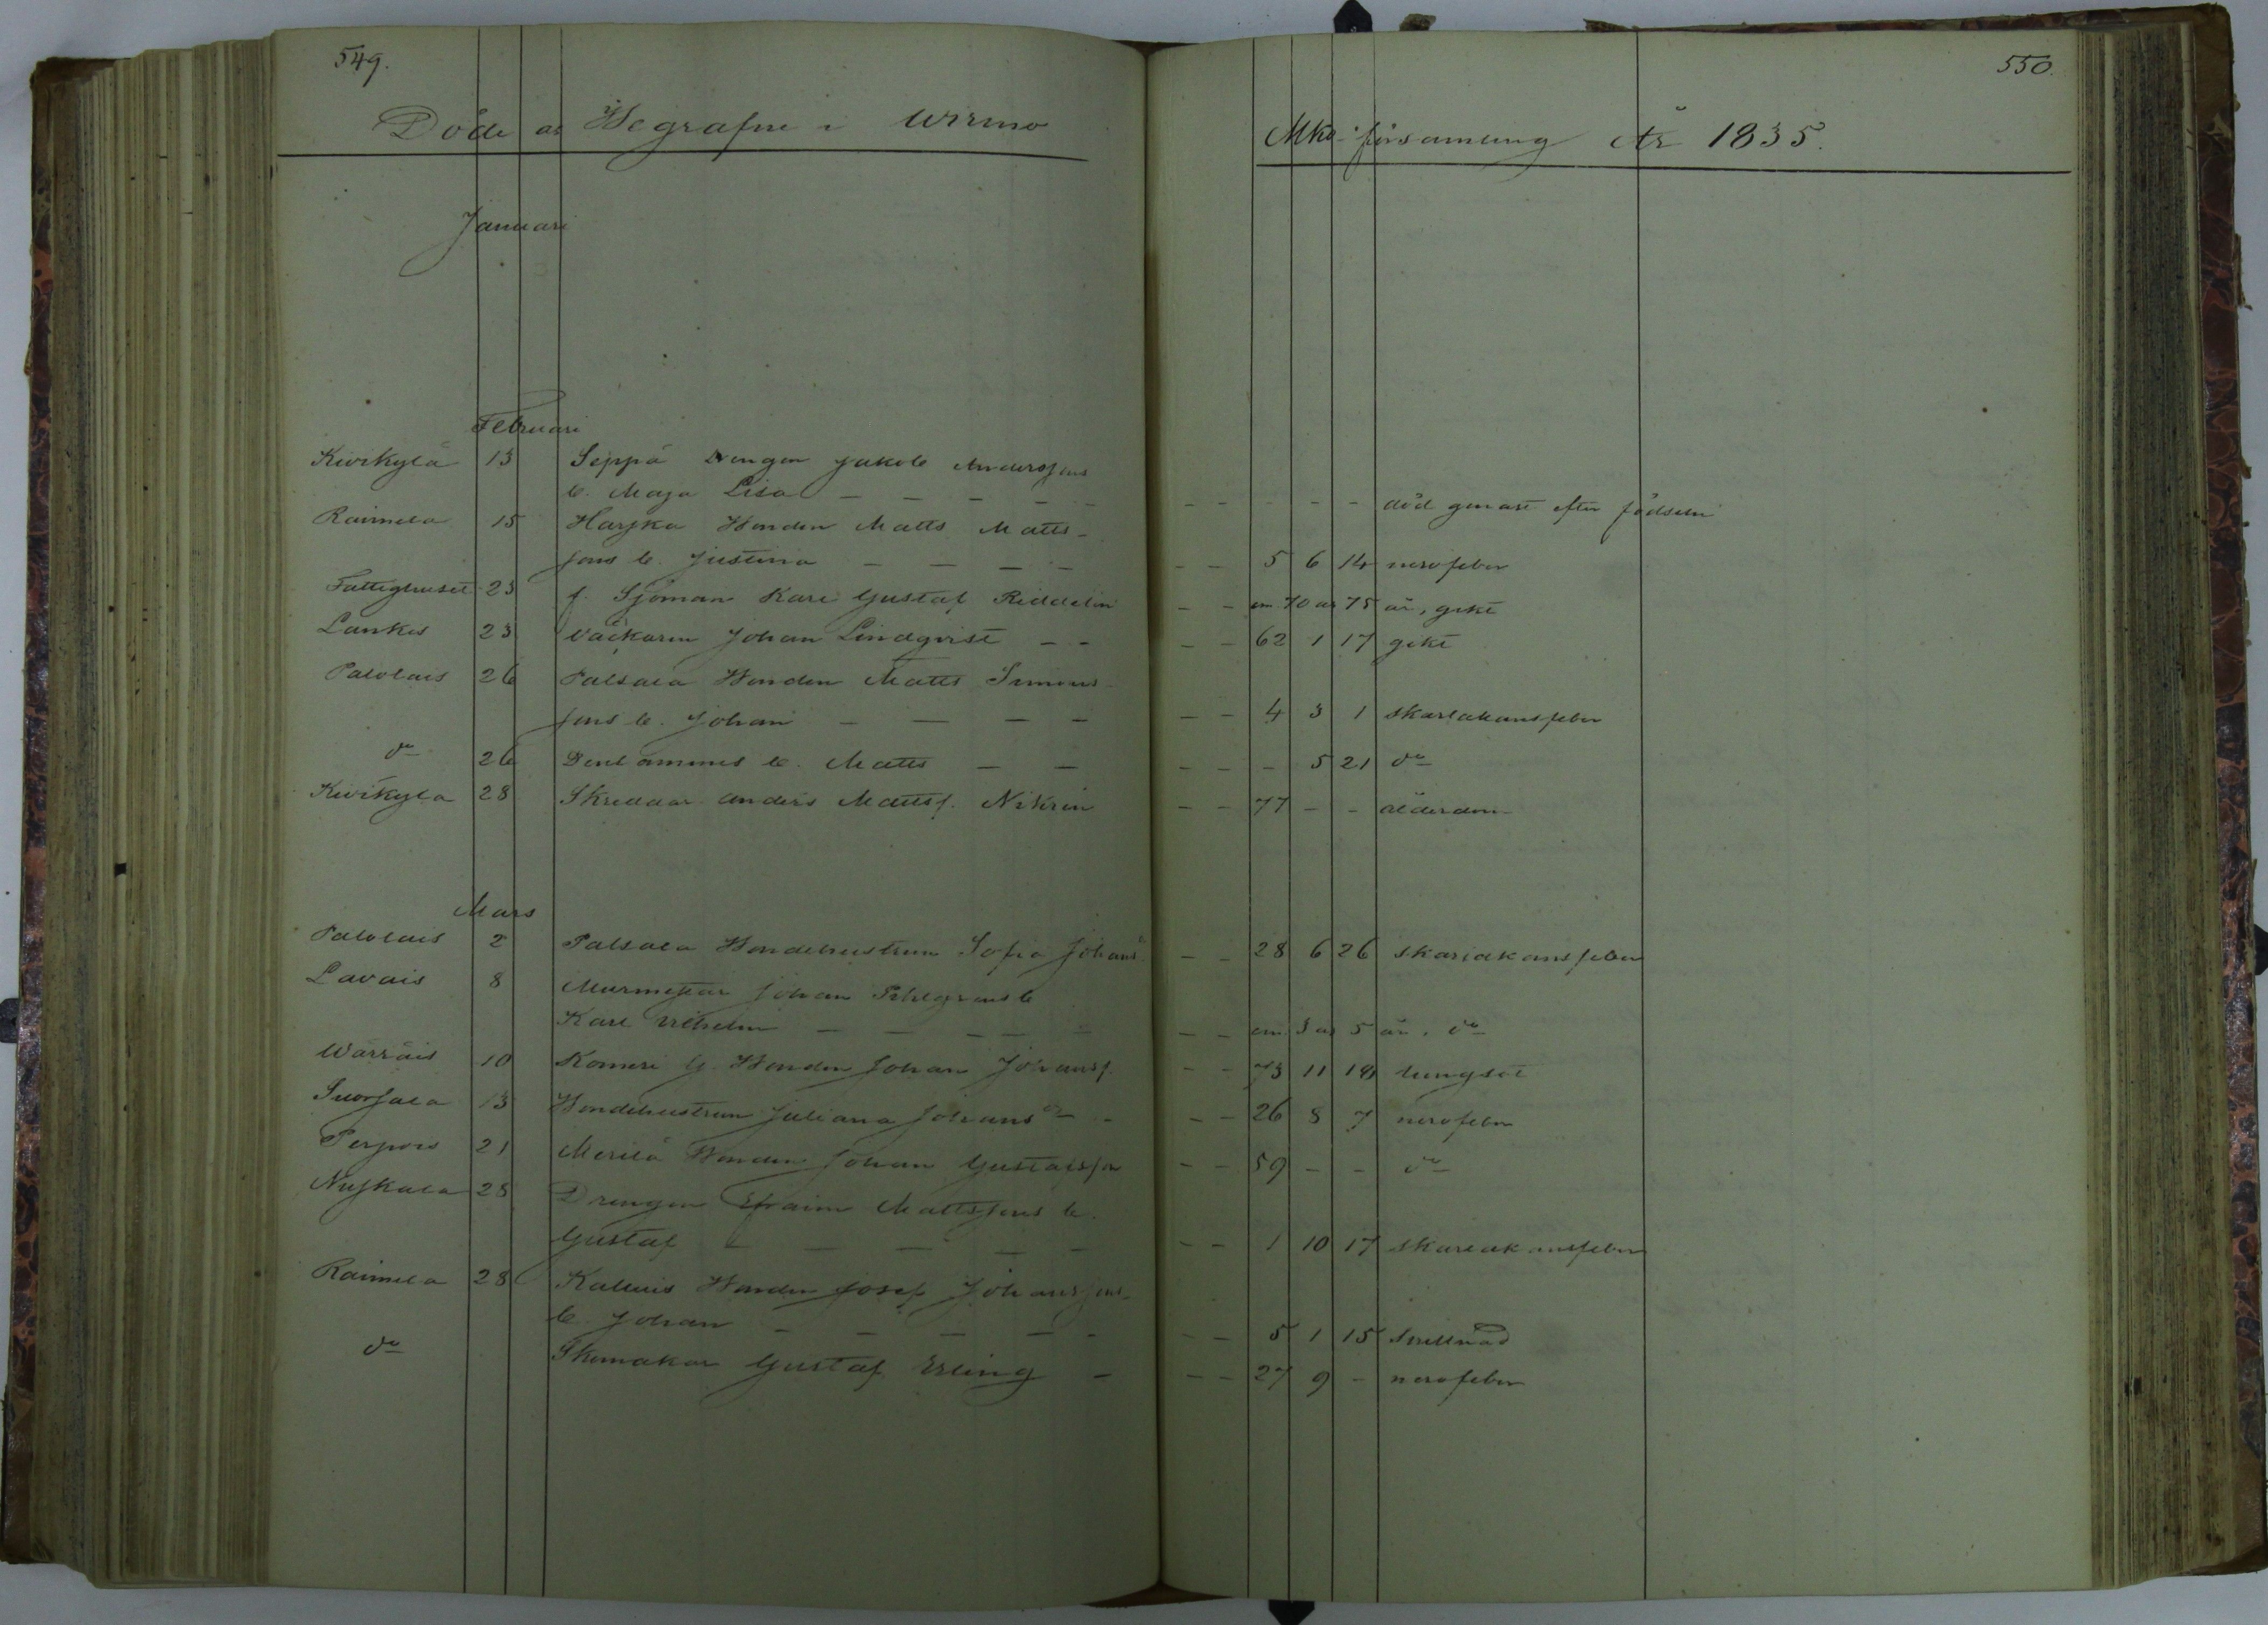 549.
Döde o. Begrafne i Wirmo
Januari
Februari
Kivikylä 13 Seppä Drengen Jakob Anderssons
b. Maja Lisa – – – –
Raimela 15 Harjka Bonden Matts Matts-
sons b. Justina – – – –
Fattighuset 23 f. Sjöman Karl Gustaf Riddelin
Lankis 23 Väckaren Johan Lindqvist – –
Palolais 26 Palsala Bonden Matts Simons-
sons b. Johan – – – –
do 26 Densammes b. Matts – –
Kivikyla 28 Skreddar Anders Mattss. Nikrin
Mars
Palolais 2 Palsala Bondehustrun Sofia Johansdr
Lavais 8 Murmestar Johan b
Karl Vilhelm – – – – –
Wärräis 10 Komeri G. Bonden Johan Johanss.
Suorsala 13 Bondehustrun Juliana Johansdr –
Perpois 21 Merilä Bonden Johan Gustafsson
Nuskala 28 Drengen Efraim Mattssons b.
Gustaf – – – – –
Raimela 28 Kalluis Bonden Josef Johanssons
b. Johan – – – – –
do Skomakar Gustaf Erling –
550.
Mko-församling År 1835.
– – – – – död genast efter födseln
– – 5 6 14 nervfeber
– – om 70 ar 75 år, gikt
– – 62 1 17 gikt
– – 4 3 1 skarlakansfeber
– – – 5 21 do
– – 77 – – ålderdom
– – 28 6 26 skarlakansfeber
– – om 3 ar 5 år. do
– – 73 11 18 lungsot
– – 26 8 7 nervfeber
– – 59 – – do
– – 1 10 17 skarlakansfeber
– – 5 1 15
– – 27 9 – nervfeber